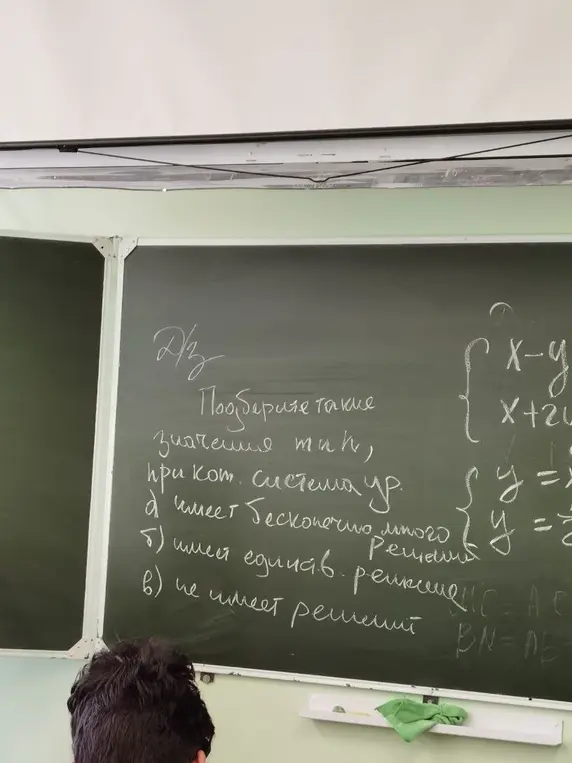 Д/з
Подберите такие
значения m и n,
при кот. система ур.
а) имеет бесконечно много
решений
б) имеет единств. решение
в) не имеет решений
x - y
x + 2y
y =
y =
BN = AB